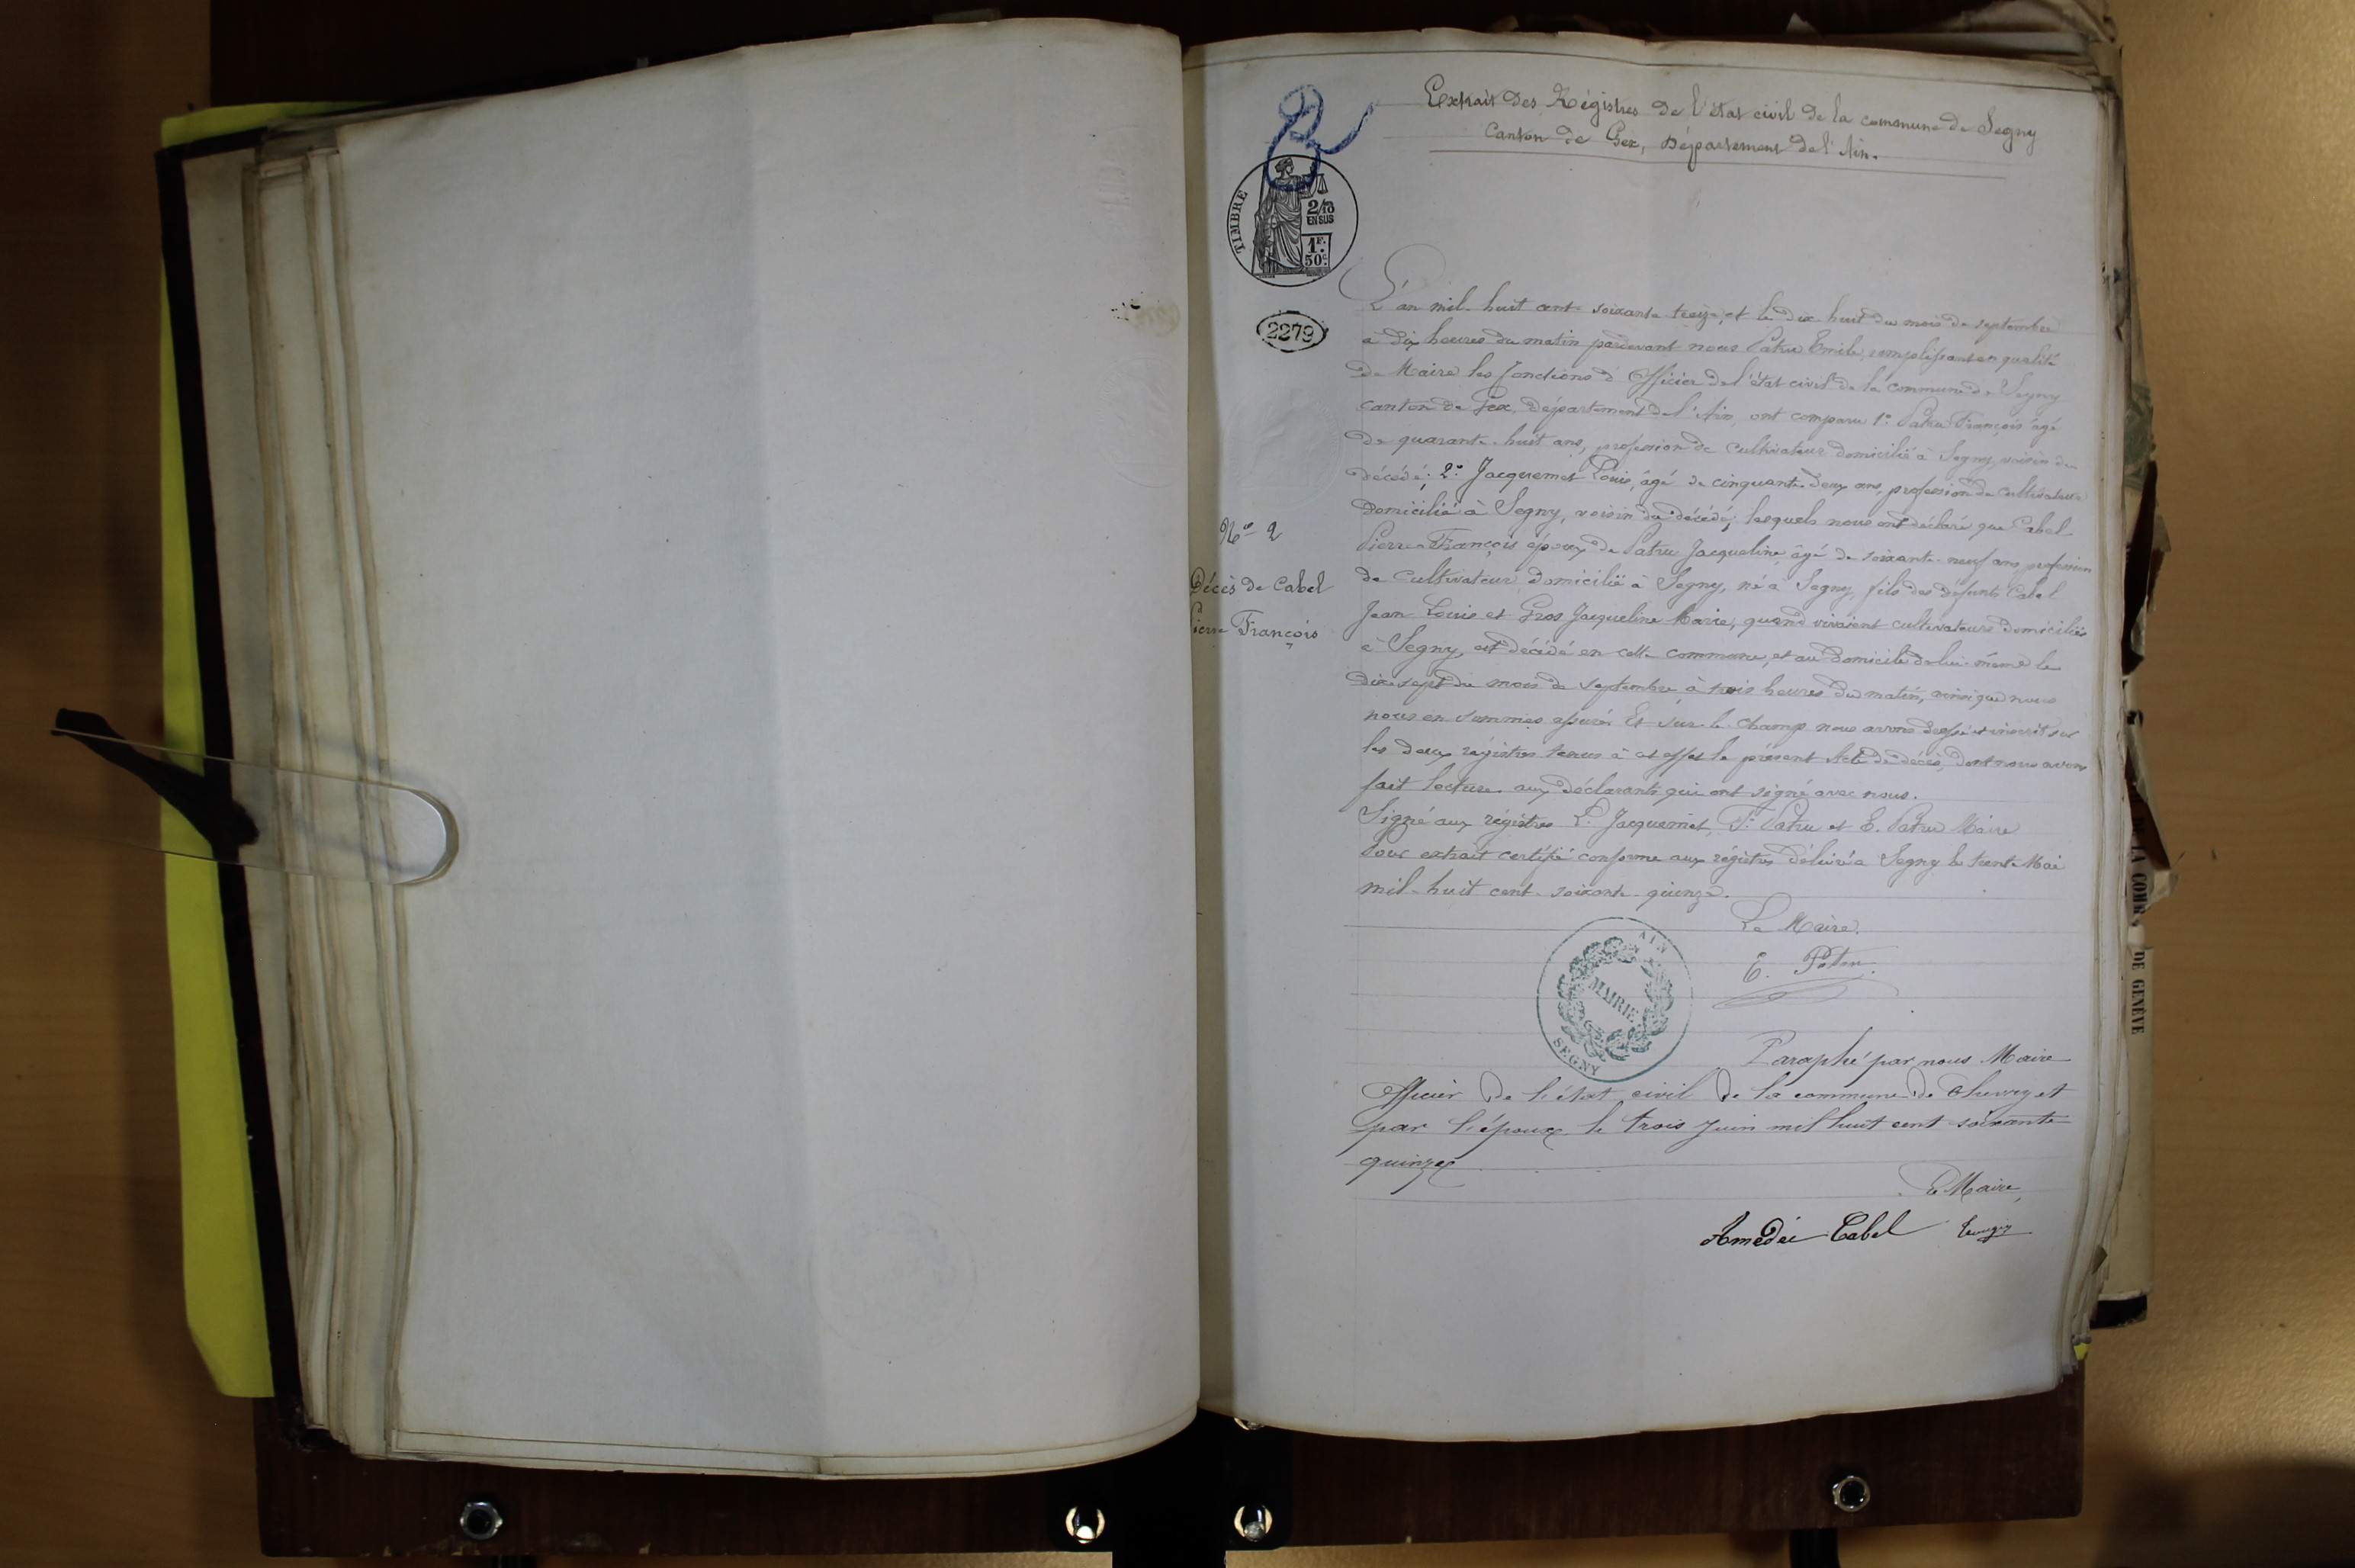 Extrait des Régistres de l'état civil de la commune de Segny
Canton de Gex, Département de l'Ain.
TIMBRE
2/10
EN SUS
1F.
50c
2279
L'an mil huit cent soixante treize, et le dix huit du mois de septembre
à dix heures du matin pardevant nous Patru Emile, remplissant en qualité
de Maire les fonctions d'Officier de l'état civil de la commune de Segny
canton de Gex, département de l'Ain, ont comparu 1° Patru François âgé
de quarante-huit ans, profession de cultivateur domicilié à Segny, voisin du
décédé; 2° Jacquemet Louis, âgé de cinquante deux ans, profession de cultivateur
domicilié à Segny, voisin du décédé; lesquels nous ont déclaré que Cabel
Pierre François époux de Patru Jacqueline, âgé de soixante-neuf ans, profession
de cultivateur domicilié à Segny, né à Segny, fils des défunts Cabel
Jean Louis et Gros Jacqueline Marie, quand vivaient cultivateurs domiciliés
à Segny, est décédé en cette commune, et au domicile de lui-même le
dix sept du mois de septembre à trois heures du matin, ainsi que nous
nous en sommes assuré. Et sur le champ nous avons dressé et inscrit sur
les deux registres tenus à cet effet le présent Acte de décès, dont nous avons
fait lecture aux déclarants qui ont signé avec nous.
Signé aux régistres L. Jacquemet, F. Patru et E. Patru Maire
Pour extrait certifié conforme aux régistres délivré à Segny le trente Mai
mil-huit cent-soixante-quinze.
No 2
Décès de Cabel
Pierre François
Le Maire.
E. Patru
AIN
MAIRIE
SEGNY
Paraphé par nous Maire
Officier de l'état civil de la commune de Chevry et
par l'époux le trois Juin mil huit cent soixante
quinze
Le Maire,
Amédée Cabel
LA COMM. DE GENÈVE